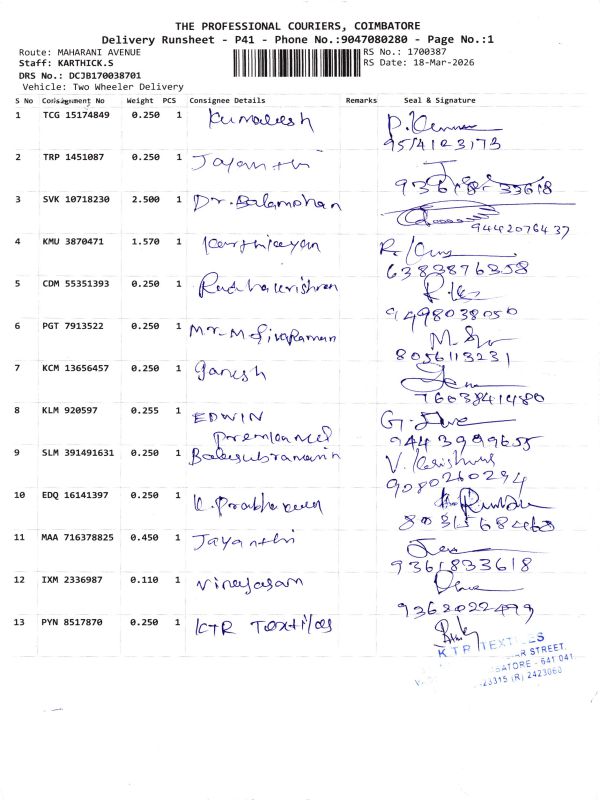 THE PROFESSIONAL COURIERS, COIMBATORE
Delivery Runsheet - P41 - Phone No.:9047080280 - Page No.:1
Route: MAHARANI AVENUE RS No.: 1700387
Staff: KARTHICK.S RS Date: 18-Mar-2026
DRS No.: DCJB170038701
Vehicle: Two Wheeler Delivery
S No Consignment No Weight PCS Consignee Details Remarks Seal & Signature
1 TCG 15174849 0.250 1 Kumaresh
2 TRP 1451087 0.250 1 Jayanthi
3 SVK 10718230 2.500 1 Dr. Balamohan
9442076437
4 KMU 3870471 1.570 1 Karthikeyan
6383876358
5 CDM 55351393 0.250 1 Radhakrishnan
9498038050
6 PGT 7913522 0.250 1 Mr. M Sivaraman
8056113231
7 KCM 13656457 0.250 1 Ganesh
7603841480
8 KLM 920597 0.255 1 EDWIN
9443999655
9 SLM 391491631 0.250 1 Balasubramanin V.
9080260294
10 EDQ 16141397 0.250 1 K. Prabhakaran
11 MAA 716378825 0.450 1 Jayanthi
9361833618
12 IXM 2336987 0.110 1 Vinayagam
9368022499
13 PYN 8517870 0.250 1 KTR Textiles
KTR TEXTILES
STREET,
- 641 041
(R) 2423060